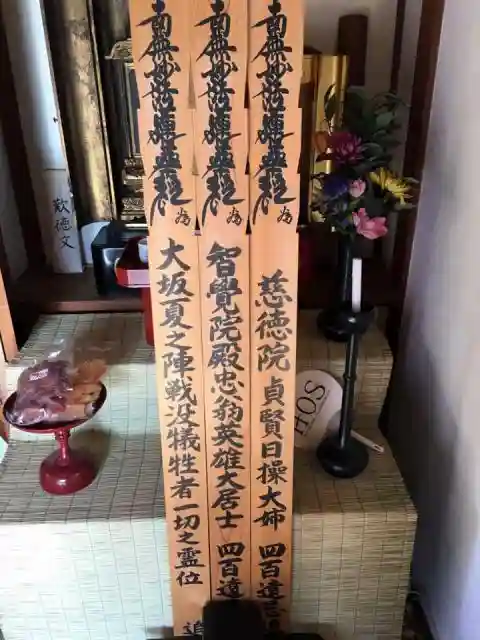 南無妙法蓮華経 為 慈徳院貞賢日操大姉 四百遠忌追
南無妙法蓮華経 為 智覺院殿忠翁英雄大居士 四百遠
南無妙法蓮華経 為 大坂夏之陣戦没犠牲者一切之霊位 追
歎徳文
HOS